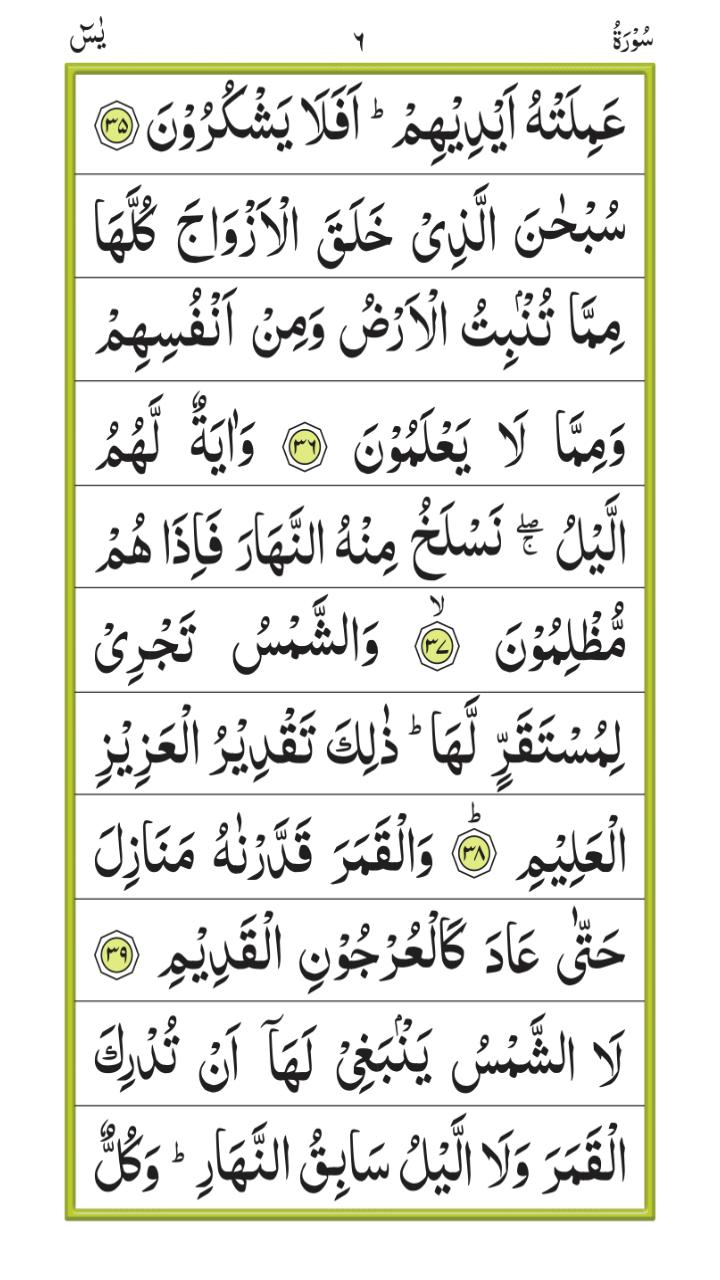 سُوْرَةُ ٦ يٰسٓ
عَمِلَتْهُ اَيْدِيْهِمْ ؕ اَفَلَا يَشْكُرُوْنَ ۳۵
سُبْحٰنَ الَّذِىْ خَلَقَ الْاَزْوَاجَ كُلَّهَا
مِمَّا تُنْۢبِتُ الْاَرْضُ وَمِنْ اَنْفُسِهِمْ
وَمِمَّا لَا يَعْلَمُوْنَ ۳۶ وَاٰيَةٌ لَّهُمُ
الَّيْلُ ۖۚ نَسْلَخُ مِنْهُ النَّهَارَ فَاِذَا هُمْ
مُّظْلِمُوْنَ ۙ۳۷ وَالشَّمْسُ تَجْرِىْ
لِمُسْتَقَرٍّ لَّهَا ؕ ذٰلِكَ تَقْدِيْرُ الْعَزِيْزِ
الْعَلِيْمِ ؕ۳۸ وَالْقَمَرَ قَدَّرْنٰهُ مَنَازِلَ
حَتّٰى عَادَ كَالْعُرْجُوْنِ الْقَدِيْمِ ۳۹
لَا الشَّمْسُ يَنْۢبَغِىْ لَهَاۤ اَنْ تُدْرِكَ
الْقَمَرَ وَلَا الَّيْلُ سَابِقُ النَّهَارِ ؕ وَكُلٌّ